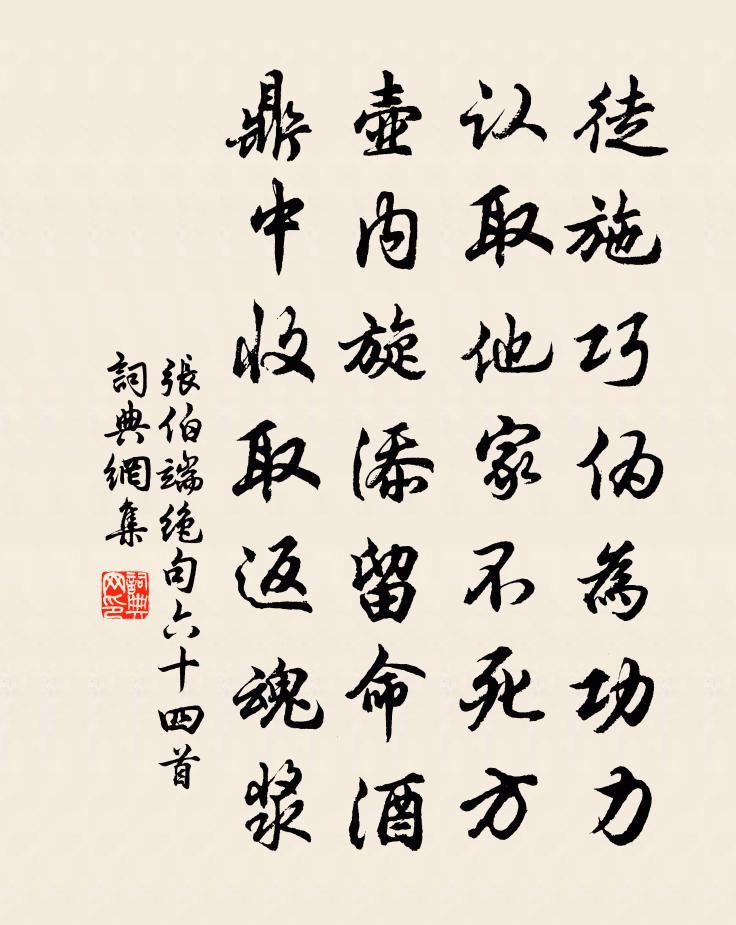 徒施巧伪為功力
认取他家不死方
壶内旋添留命酒
鼎中收取返魂浆
張伯端绝句六十四首
詞典網集
詞典网印